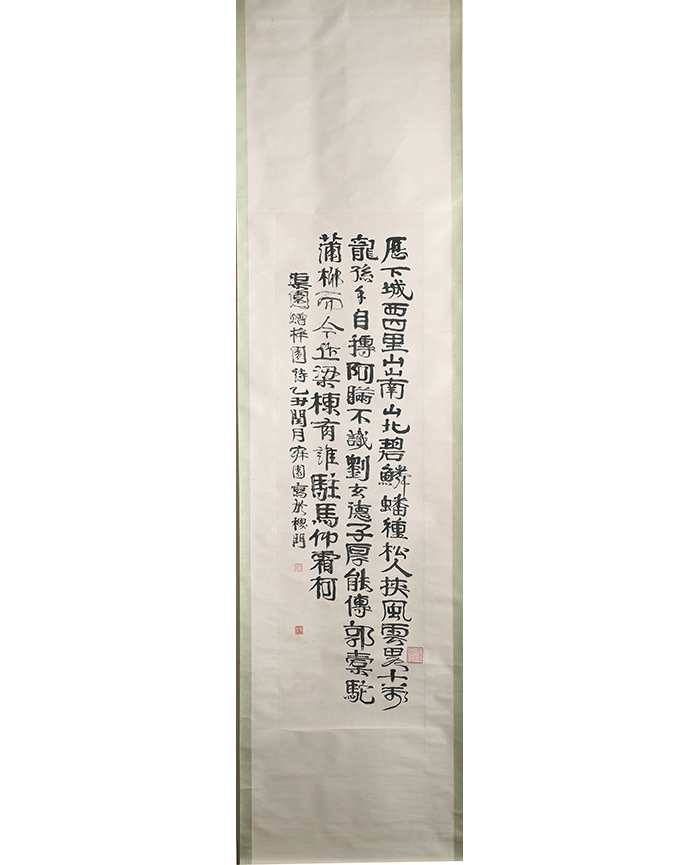 歷下城西四里山山南山北碧鱗蟠種松人挾風雲十萬
龍孫手自摶阿瞞不識劉玄德子厚能傳郭橐駝
蒲柳而今作梁棟有誰駐馬仰霜柯
蟠梓園詩乙丑閏月園寫於稷門